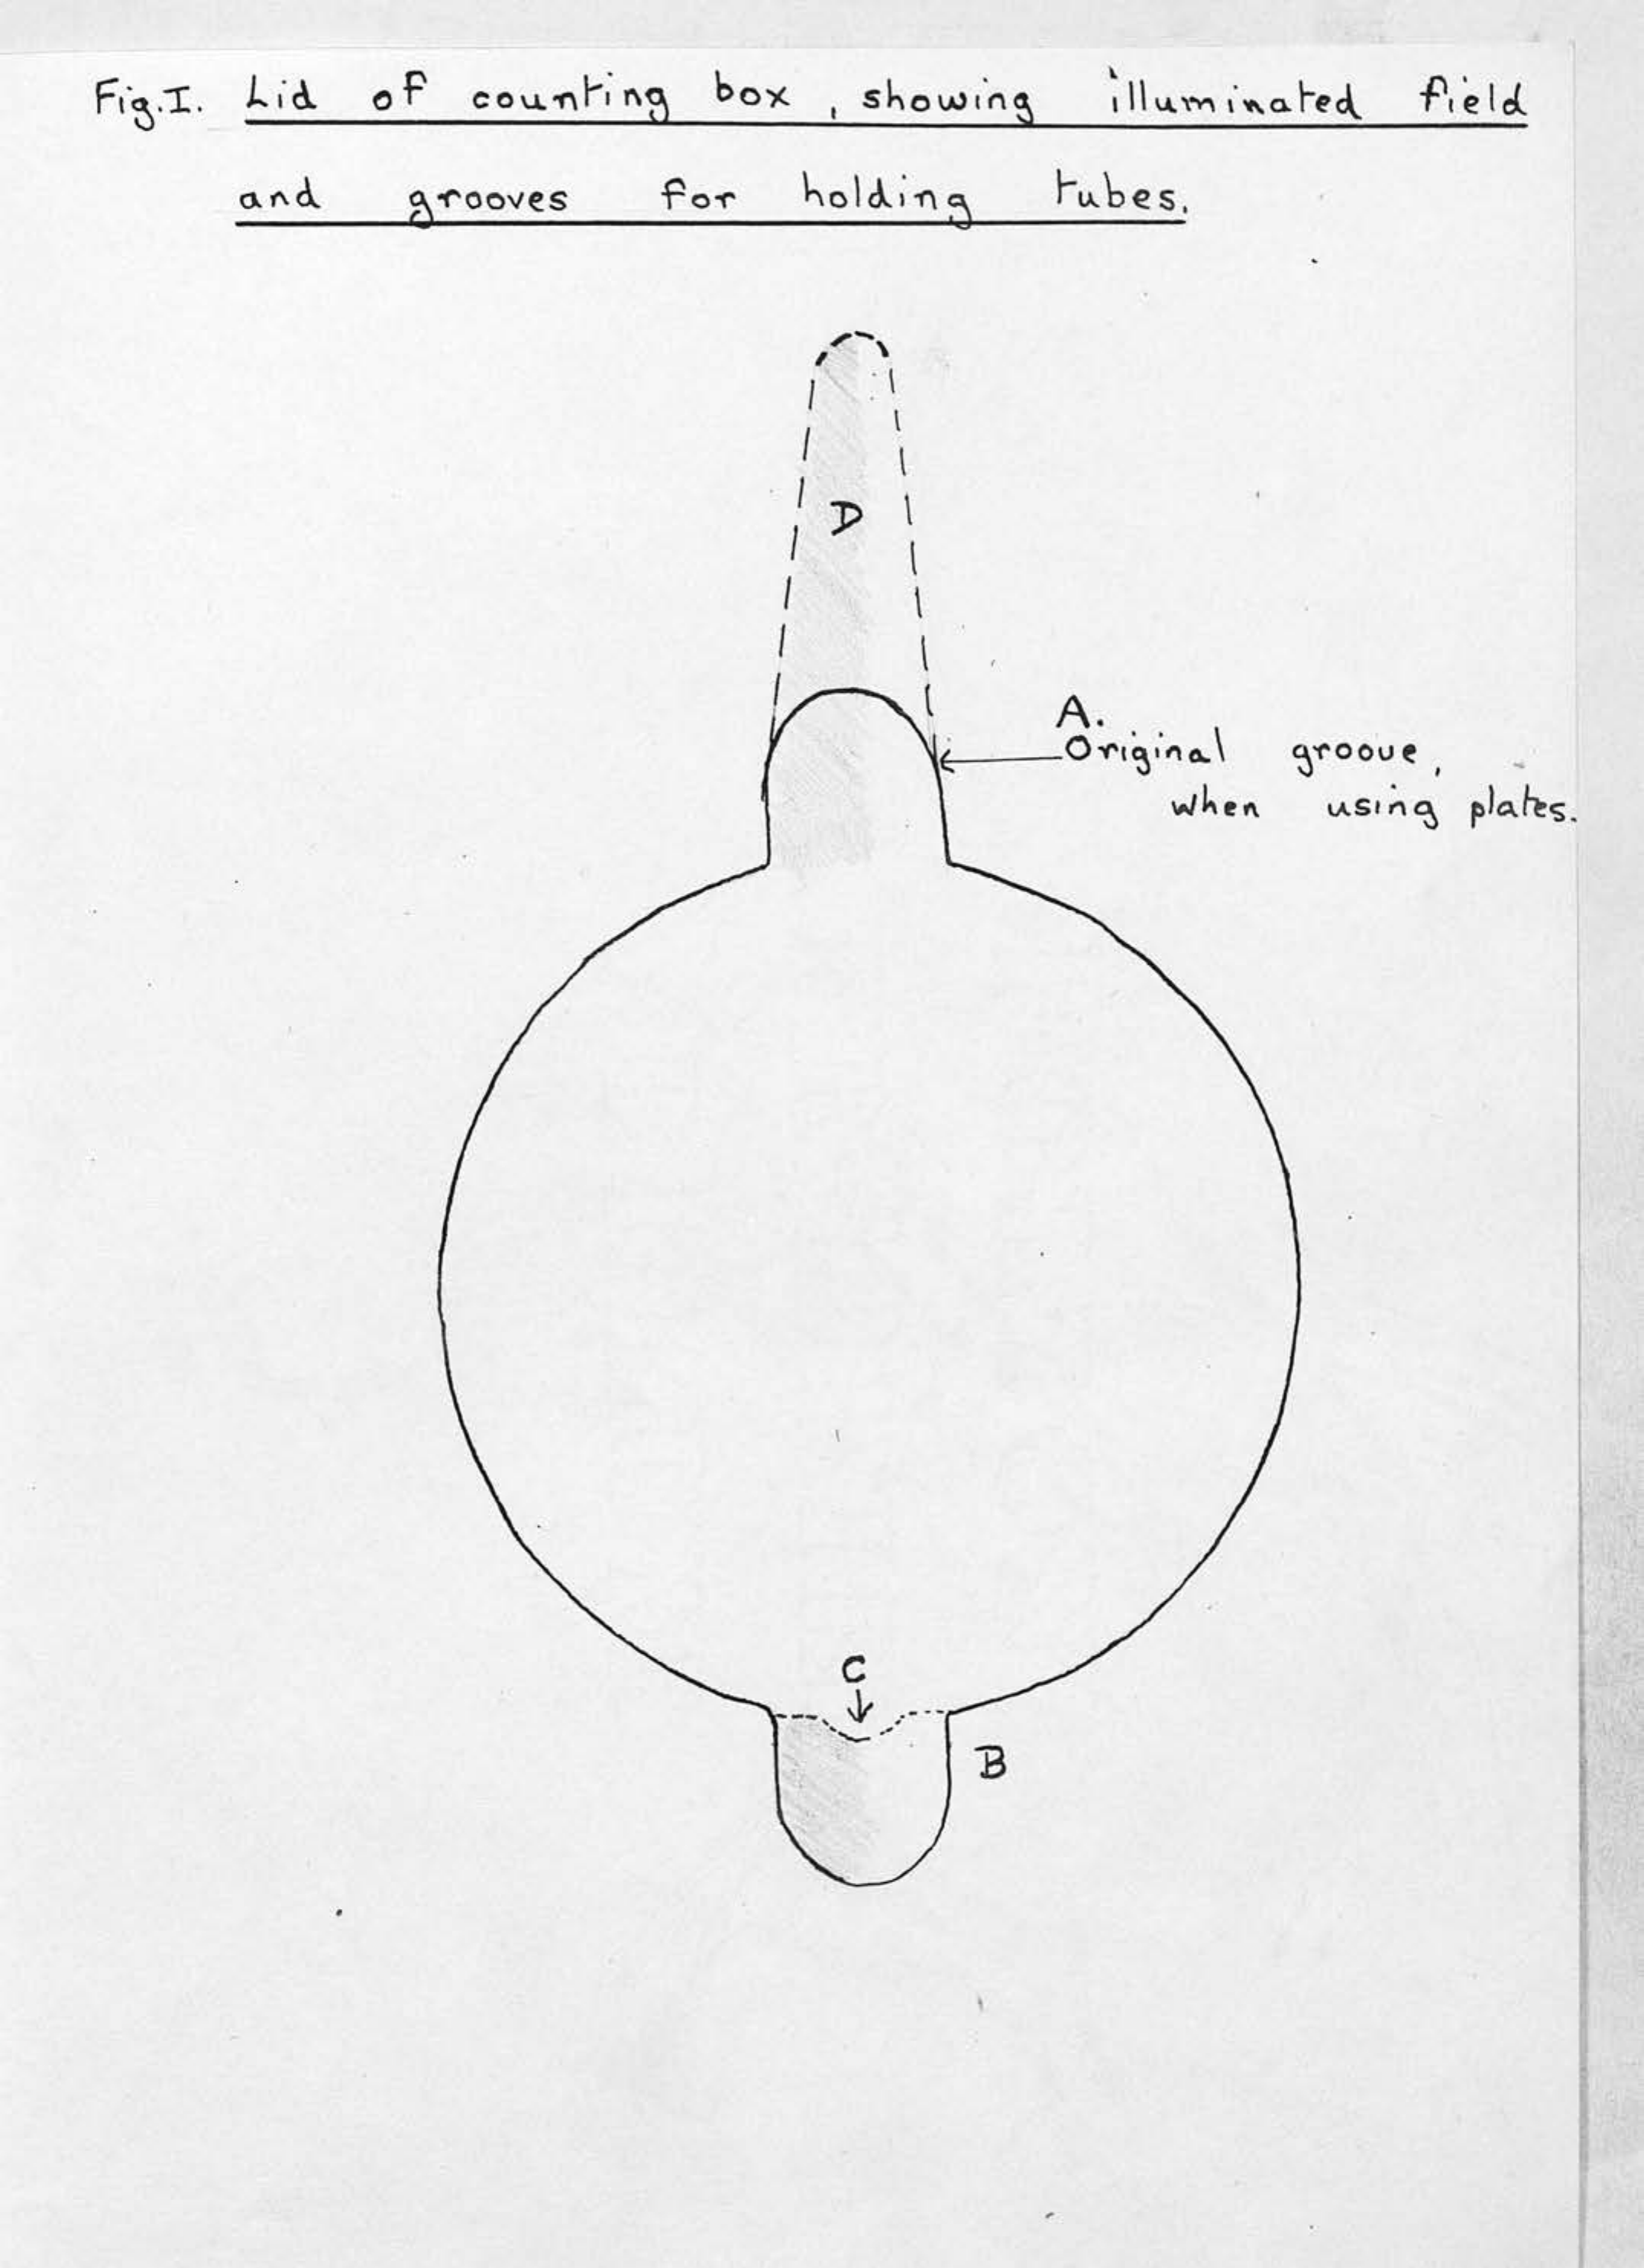 Fig.I. Lid of counting box, showing illuminated field
and grooves for holding tubes.
D
A.
Original groove,
when using plates.
C
B